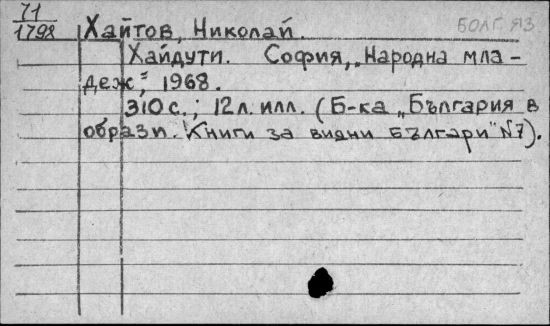 71
1798
БОЛГ ЯЗ
Хайтов, Николай.
Хайдути. София, „Народна мла-
деж", 1968.
310 с.; 12 л. илл. (Б-ка „България в
образи. Книги за видни българи" №7).